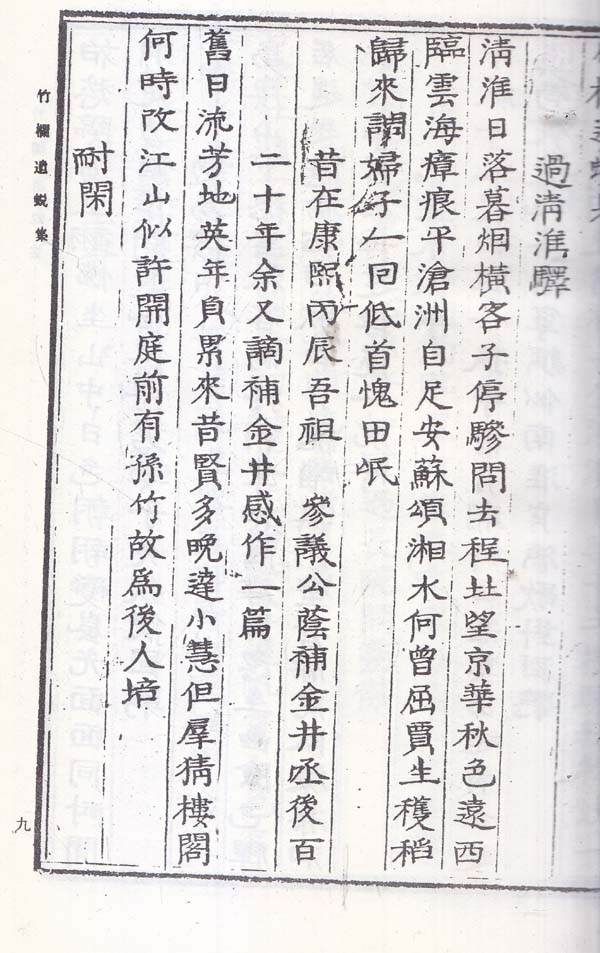 過清淮驛
清淮日落暮烟橫客子停驂問去程北望京華秋色遠西
臨雲海瘴痕平滄洲自足安蘇頌湘水何曾屈賈生穫稻
歸來謂婦子一回低首愧田氓
昔在康熙丙辰吾祖 參議公蔭補金井丞後百
二十年余又謫補金井感作一篇
舊日流芳地英年負累來昔賢多晩達小慧但羣猜樓閣
何時改江山似許開庭前有孫竹故爲後人培
耐閑
竹欄遺蛻集
九